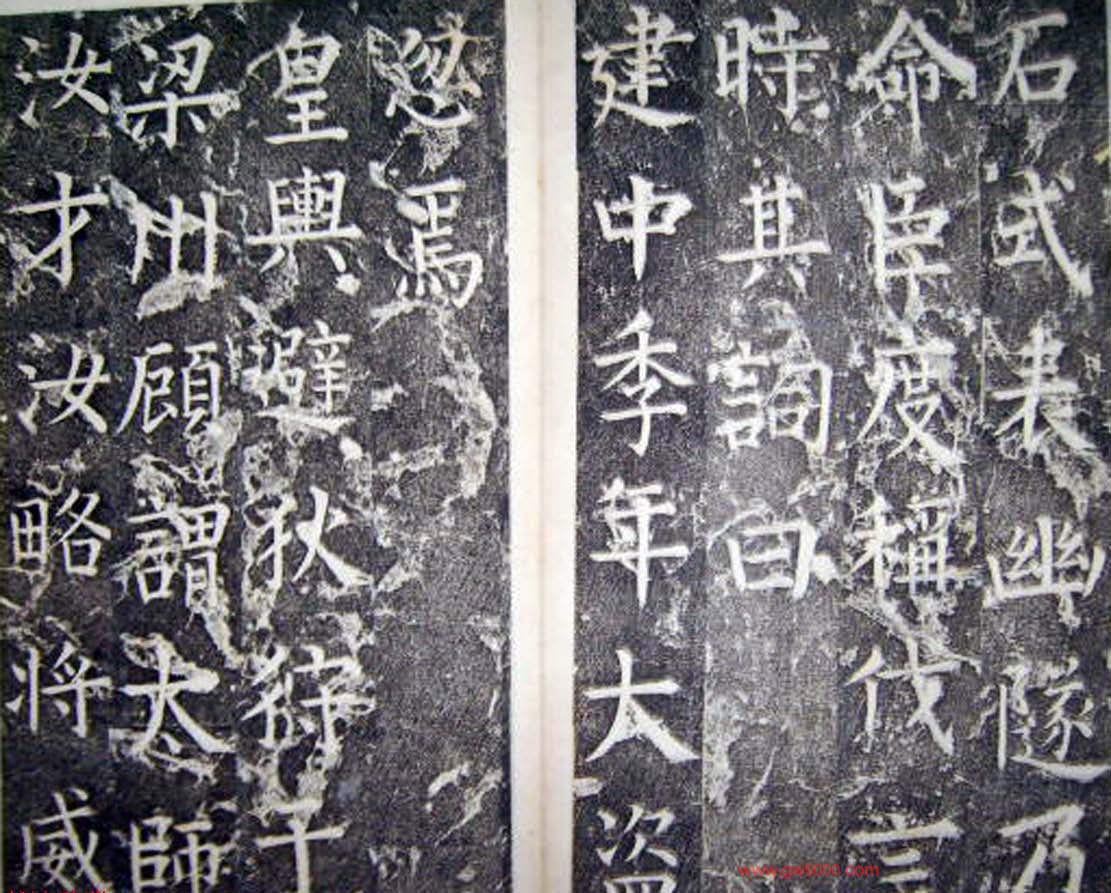 石式表幽隧乃
命臣度稱伐言
時其詞曰
建中季年大次
忽焉
皇輿避狄狩于
梁州顧謂太師
汝才汝略將威
www.gw5000.com